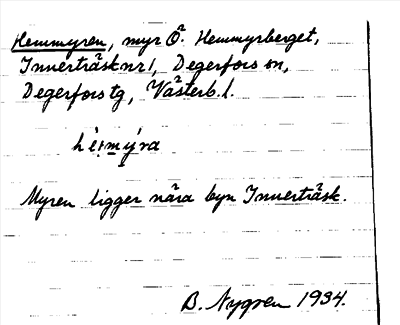 Hemmyren, myr Ö. Hemmyrberget,
Inverträsk nr 1, Degerfors sn,
Degerfors tg, Västerb. l.
Myren ligger nära byn Inverträsk.
B. Nygren 1934.